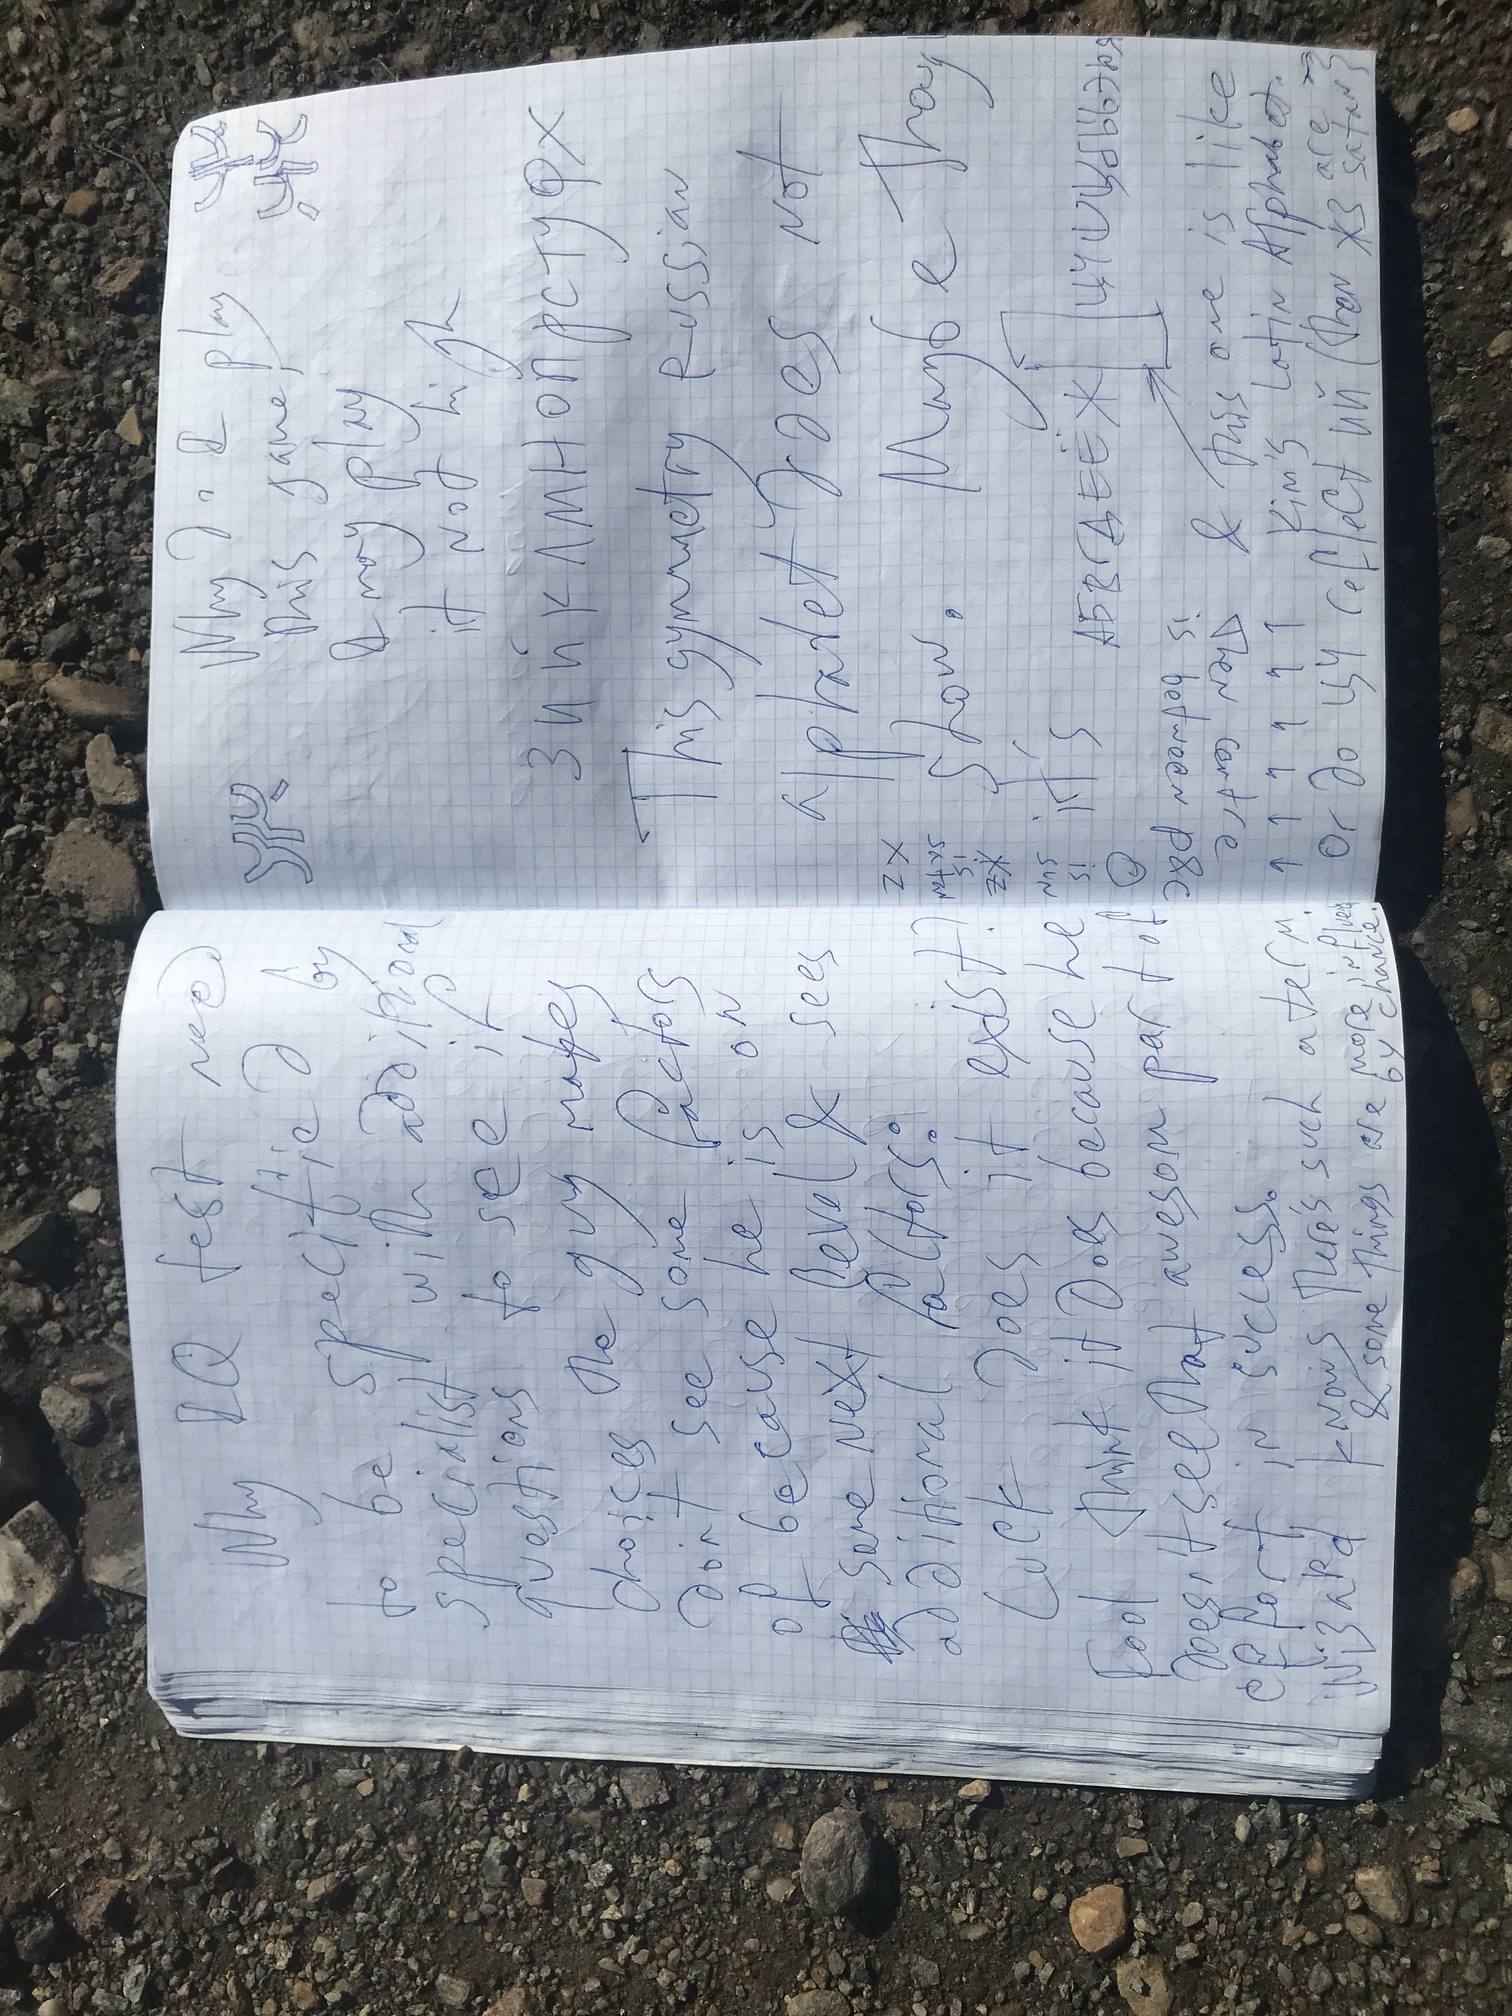 Why IQ test need
to be specific by
specialist with additional
questions to see if
the guy makes
choises
dont see some factors
of because he is on
some next level & sees
additional factors:
Luck does it exist?
Fool think it does because he
doesn't see that awesom part of
effort in success.
Wizard knows there's such a term
& some things are by chance.
Why do I play
this game,
I may play
it not high
З И Й К Л М Н О П Р С Т У Ф Х
This symmetry Russian
alphabet does not
show. Maybe thay
ZX
ZX
it's АБВГДЕЁЖ ЦЧШЩЪЫЬЭЮЯ
is between
& this one is like
Kim's Latin Alphabet.
or do ЦЧ reflect ИЙ (then ХЗ are